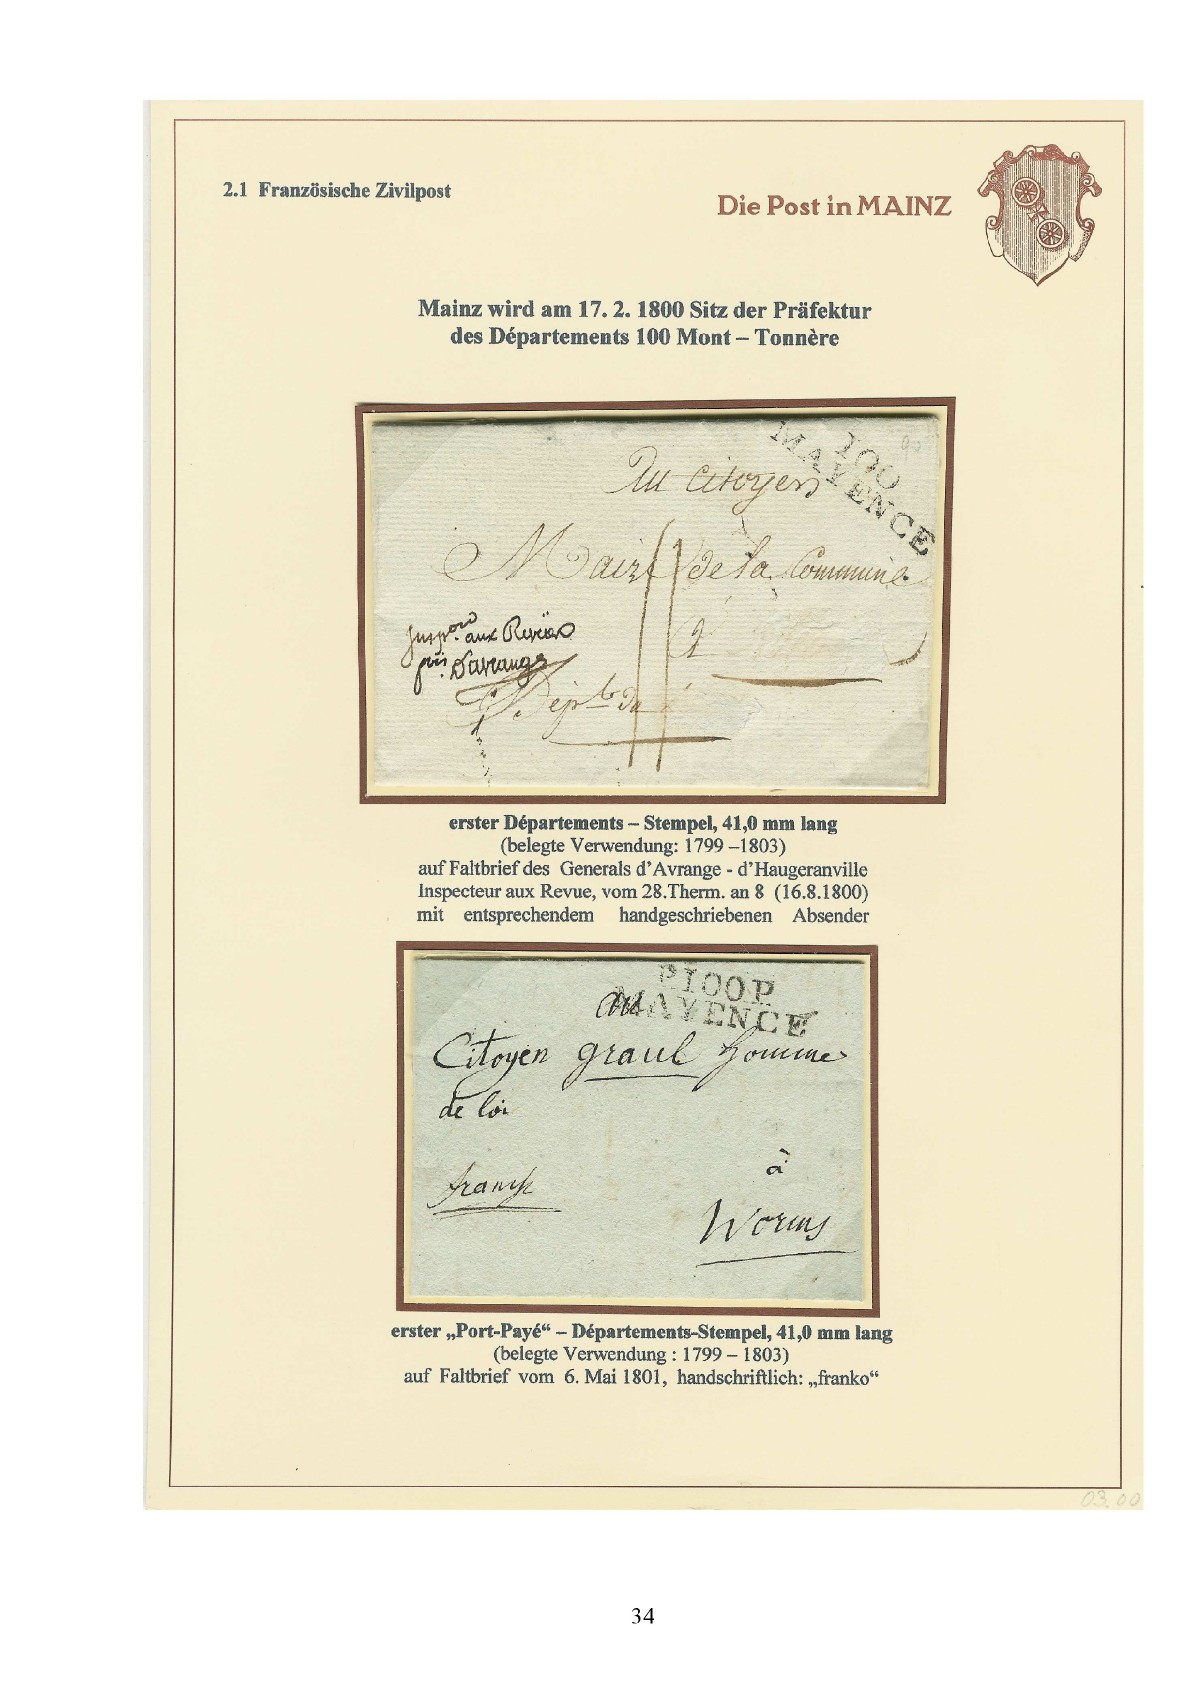 2.1 Französische Zivilpost
Die Post in MAINZ
Mainz wird am 17. 2. 1800 Sitz der Präfektur
des Départements 100 Mont – Tonnère
100
MAYENCE
90
Au citoyen
Maire de la Commune
à
Inspr. aux Revues
D'avrange
Dépt. du
erster Départements – Stempel, 41,0 mm lang
(belegte Verwendung: 1799 –1803)
auf Faltbrief des Generals d'Avrange - d'Haugeranville
Inspecteur aux Revue, vom 28.Therm. an 8 (16.8.1800)
mit entsprechendem handgeschriebenen Absender
P100P
MAYENCE
au
Citoyen graul homme
de loi
franco
à
Worms
erster „Port-Payé“ – Départements-Stempel, 41,0 mm lang
(belegte Verwendung : 1799 – 1803)
auf Faltbrief vom 6. Mai 1801, handschriftlich: „franko“
03.00
34